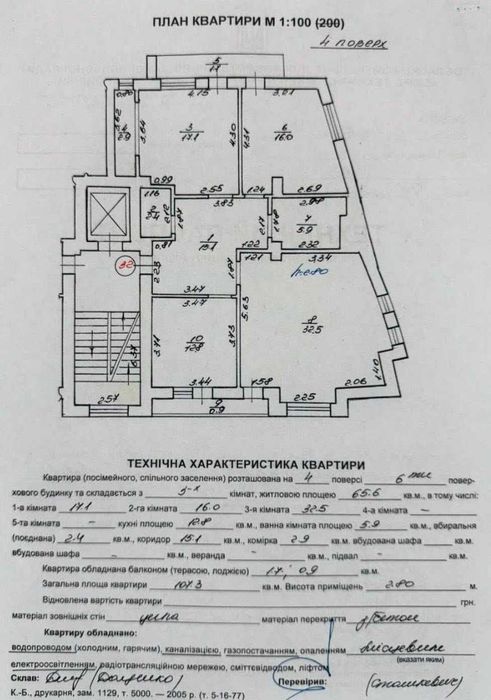 ПЛАН КВАРТИРИ М 1:100 (200)
4 поверх
5
1.1
0.80
4.15
3.01
3.62
4
2.9
3.64
3
17.1
4.30
4.31
6
16.0
0.99
1.16
2.55
1.24
2.69
2.4
2.12
1.87
3.83
2.17
1.48
2.98
7
5.9
1
15.1
0.81
1.22
2.32
32
2.23
1.87
1.21
3.34
h=2.80
3.47
3.47
5.63
8
32.5
3.71
10
12.8
3.73
6.37
2.57
3.44
1.58
2.25
2.06
1.40
9
0.9
ТЕХНІЧНА ХАРАКТЕРИСТИКА КВАРТИРИ
Квартира (посімейного, спільного заселення) розташована на 4 поверсі 6 ти повер-
хового будинку та складається з 3-х кімнат, житловою площею 65.6 кв.м., в тому числі:
1-а кімната 17.1 2-га кімната 16.0 3-я кімната 32.5 4-а кімната –
5-та кімната – кухні площею 12.8 кв.м., ванна кімната площею 5.9 кв.м., вбиральня
(поєднана) 2.4 кв.м., коридор 15.1 кв.м., комірка 2.9 кв.м. вбудована шафа – кв.м.,
вбудована шафа – кв.м., веранда – кв.м., підвал – кв.м.
Квартира обладнана балконом (терасою, лоджією) 1.1; 0.9 кв.м.
Загальна площа квартири 107.3 кв.м. Висота приміщень 2.80 м.
Відновна вартість квартири грн.
матеріал зовнішніх стін цегла матеріал перекриття з/бетон
Квартиру обладнано:
водопроводом (холодним, гарячим), каналізацією, газопостачанням, опаленням місцевим
(вказати яким)
електроосвітленням, радіотрансляційною мережею, сміттєвідводом, ліфтом
Склав: Перевірив:
К.-Б., друкарня, зам. 1129, т. 5000. — 2005 р. (т. 5-16-77)